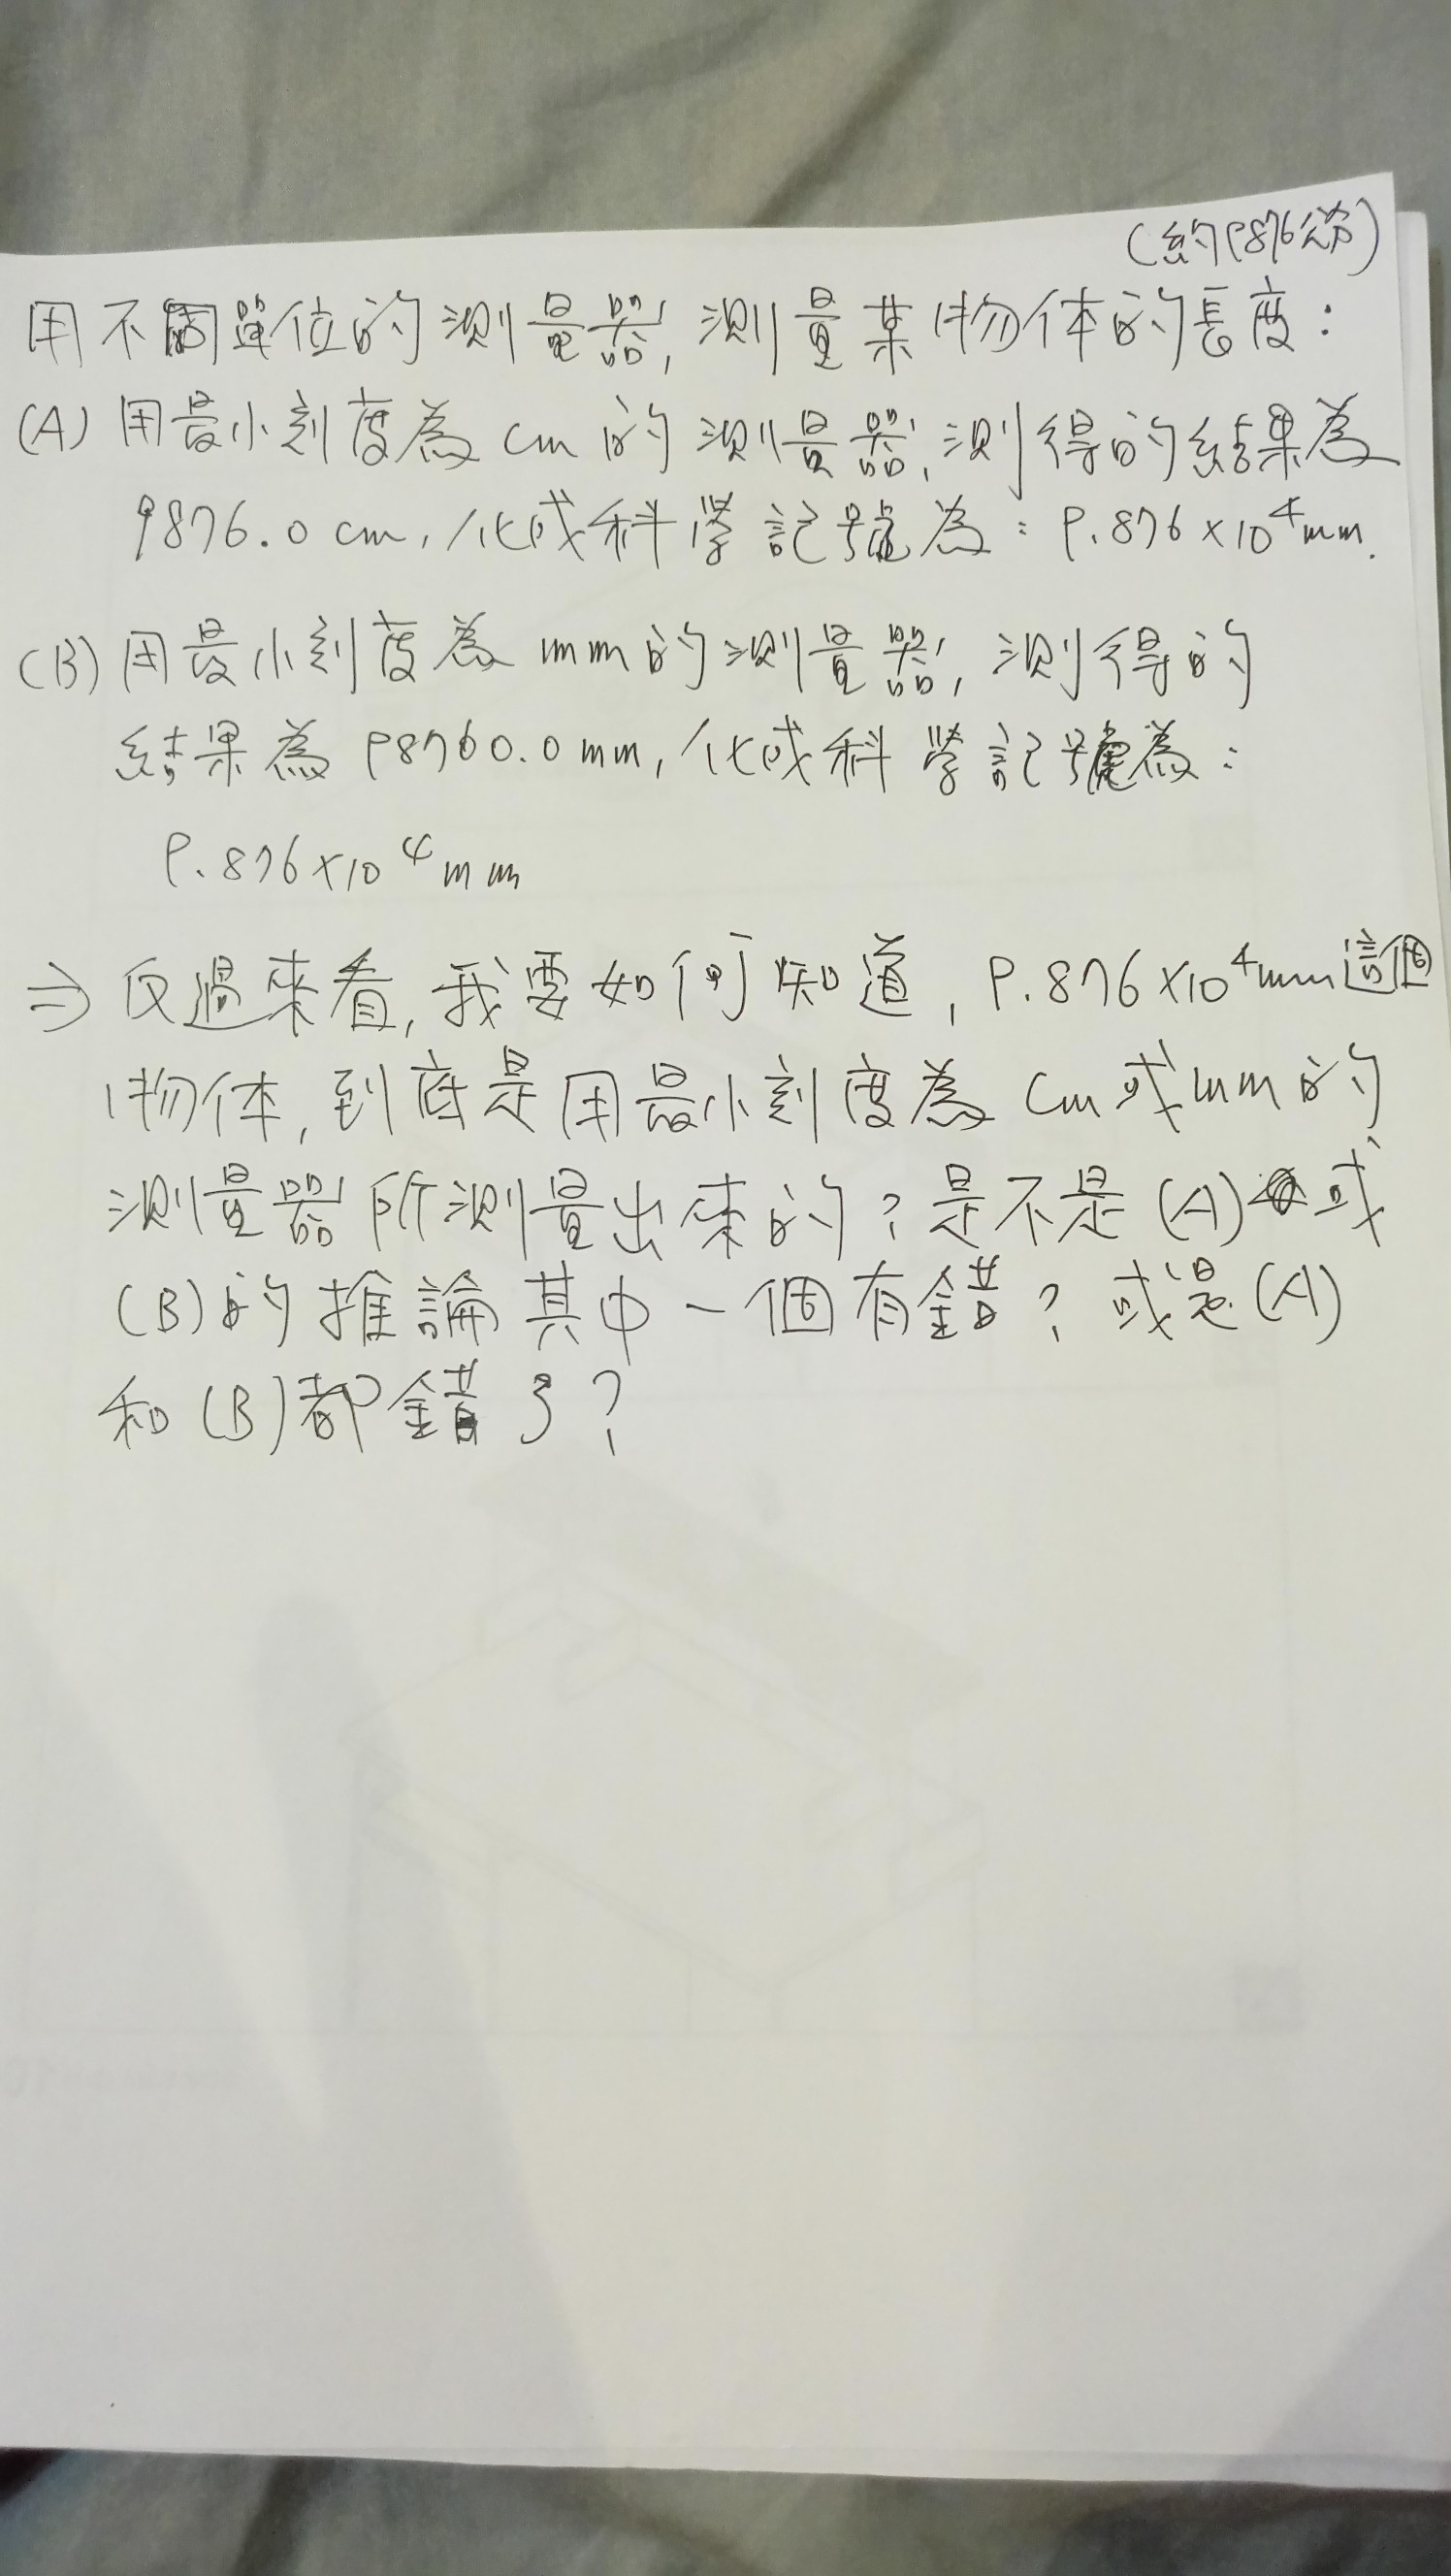 (約9876公分)
用不同單位的測量器,測量某物体的長度:
(A) 用最小刻度為 cm 的測量器,測得的結果為
9876.0 cm,化成科學記號為:9.876×10⁴mm.
(B) 用最小刻度為 mm的測量器,測得的
結果為 98760.0mm,化成科學記號為:
9.876×10⁴mm
⇒ 反過來看,我要如何知道,9.876×10⁴mm這個
物体,到底是用最小刻度為 cm或mm的
測量器所測量出來的?是不是(A)或
(B)的推論其中一個有錯?或是(A)
和(B)都錯了?